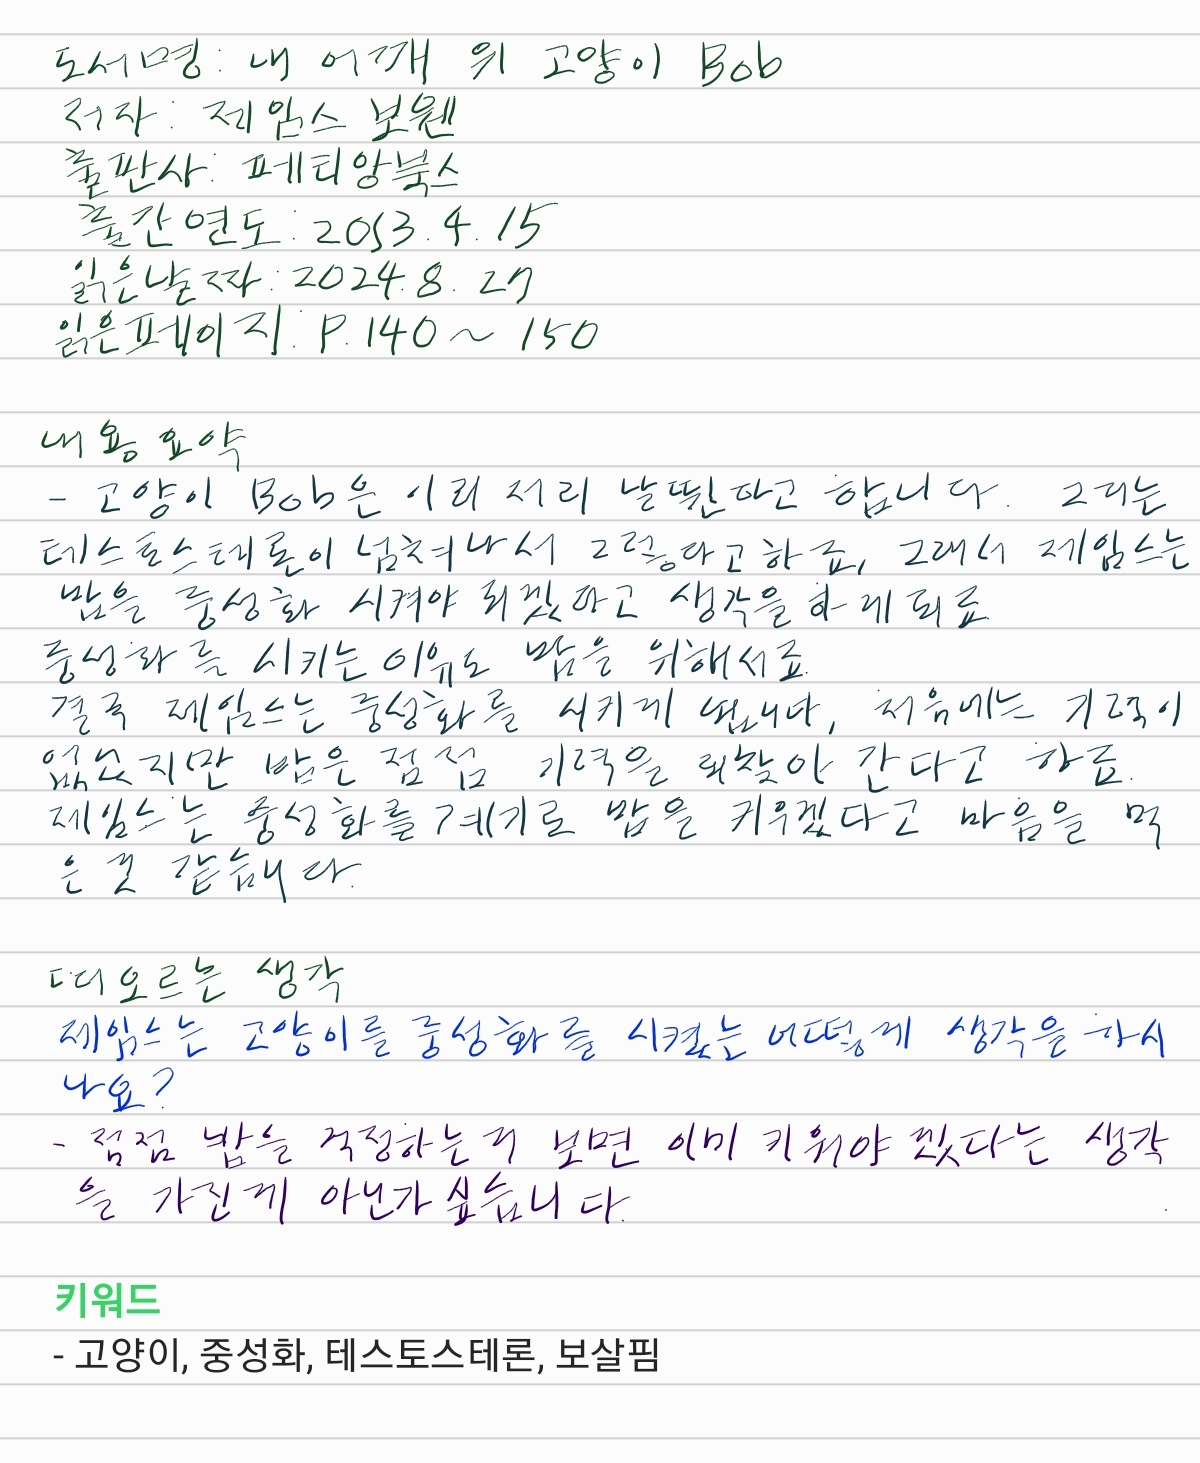 도서명: 내 어깨 위 고양이 Bob
저자: 제임스 보웬
출판사: 페티앙북스
출간연도: 2013.4.15
읽은날짜: 2024.8.27
읽은페이지: P.140~150
내용요약
- 고양이 Bob은 이리 저리 날뛴다고 합니다. 그리는
테스토스테론이 넘쳐나서 그렇다고하죠, 그래서 제임스는
밥을 중성화 시켜야 되겠다고 생각을하게되죠
중성화를 시키는이유도 밥을 위해서죠.
결국 제임스는 중성화를 시키게 됩니다, 처음에는 기력이
없었지만 밥은 점점 기력을 되찾아 간다고 하죠.
제임스는 중성화를계기로 밥을 키우겠다고 마음을 먹
은것 같습니다.
떠오르는 생각
제임스는 고양이를 중성화를 시켰는 어떻게 생각을 하시
나요?
- 점점 밥을 걱정하는거 보면 이미 키워야 겠다는 생각
을 가진게 아닌가싶습니다.
키워드
- 고양이, 중성화, 테스토스테론, 보살핌